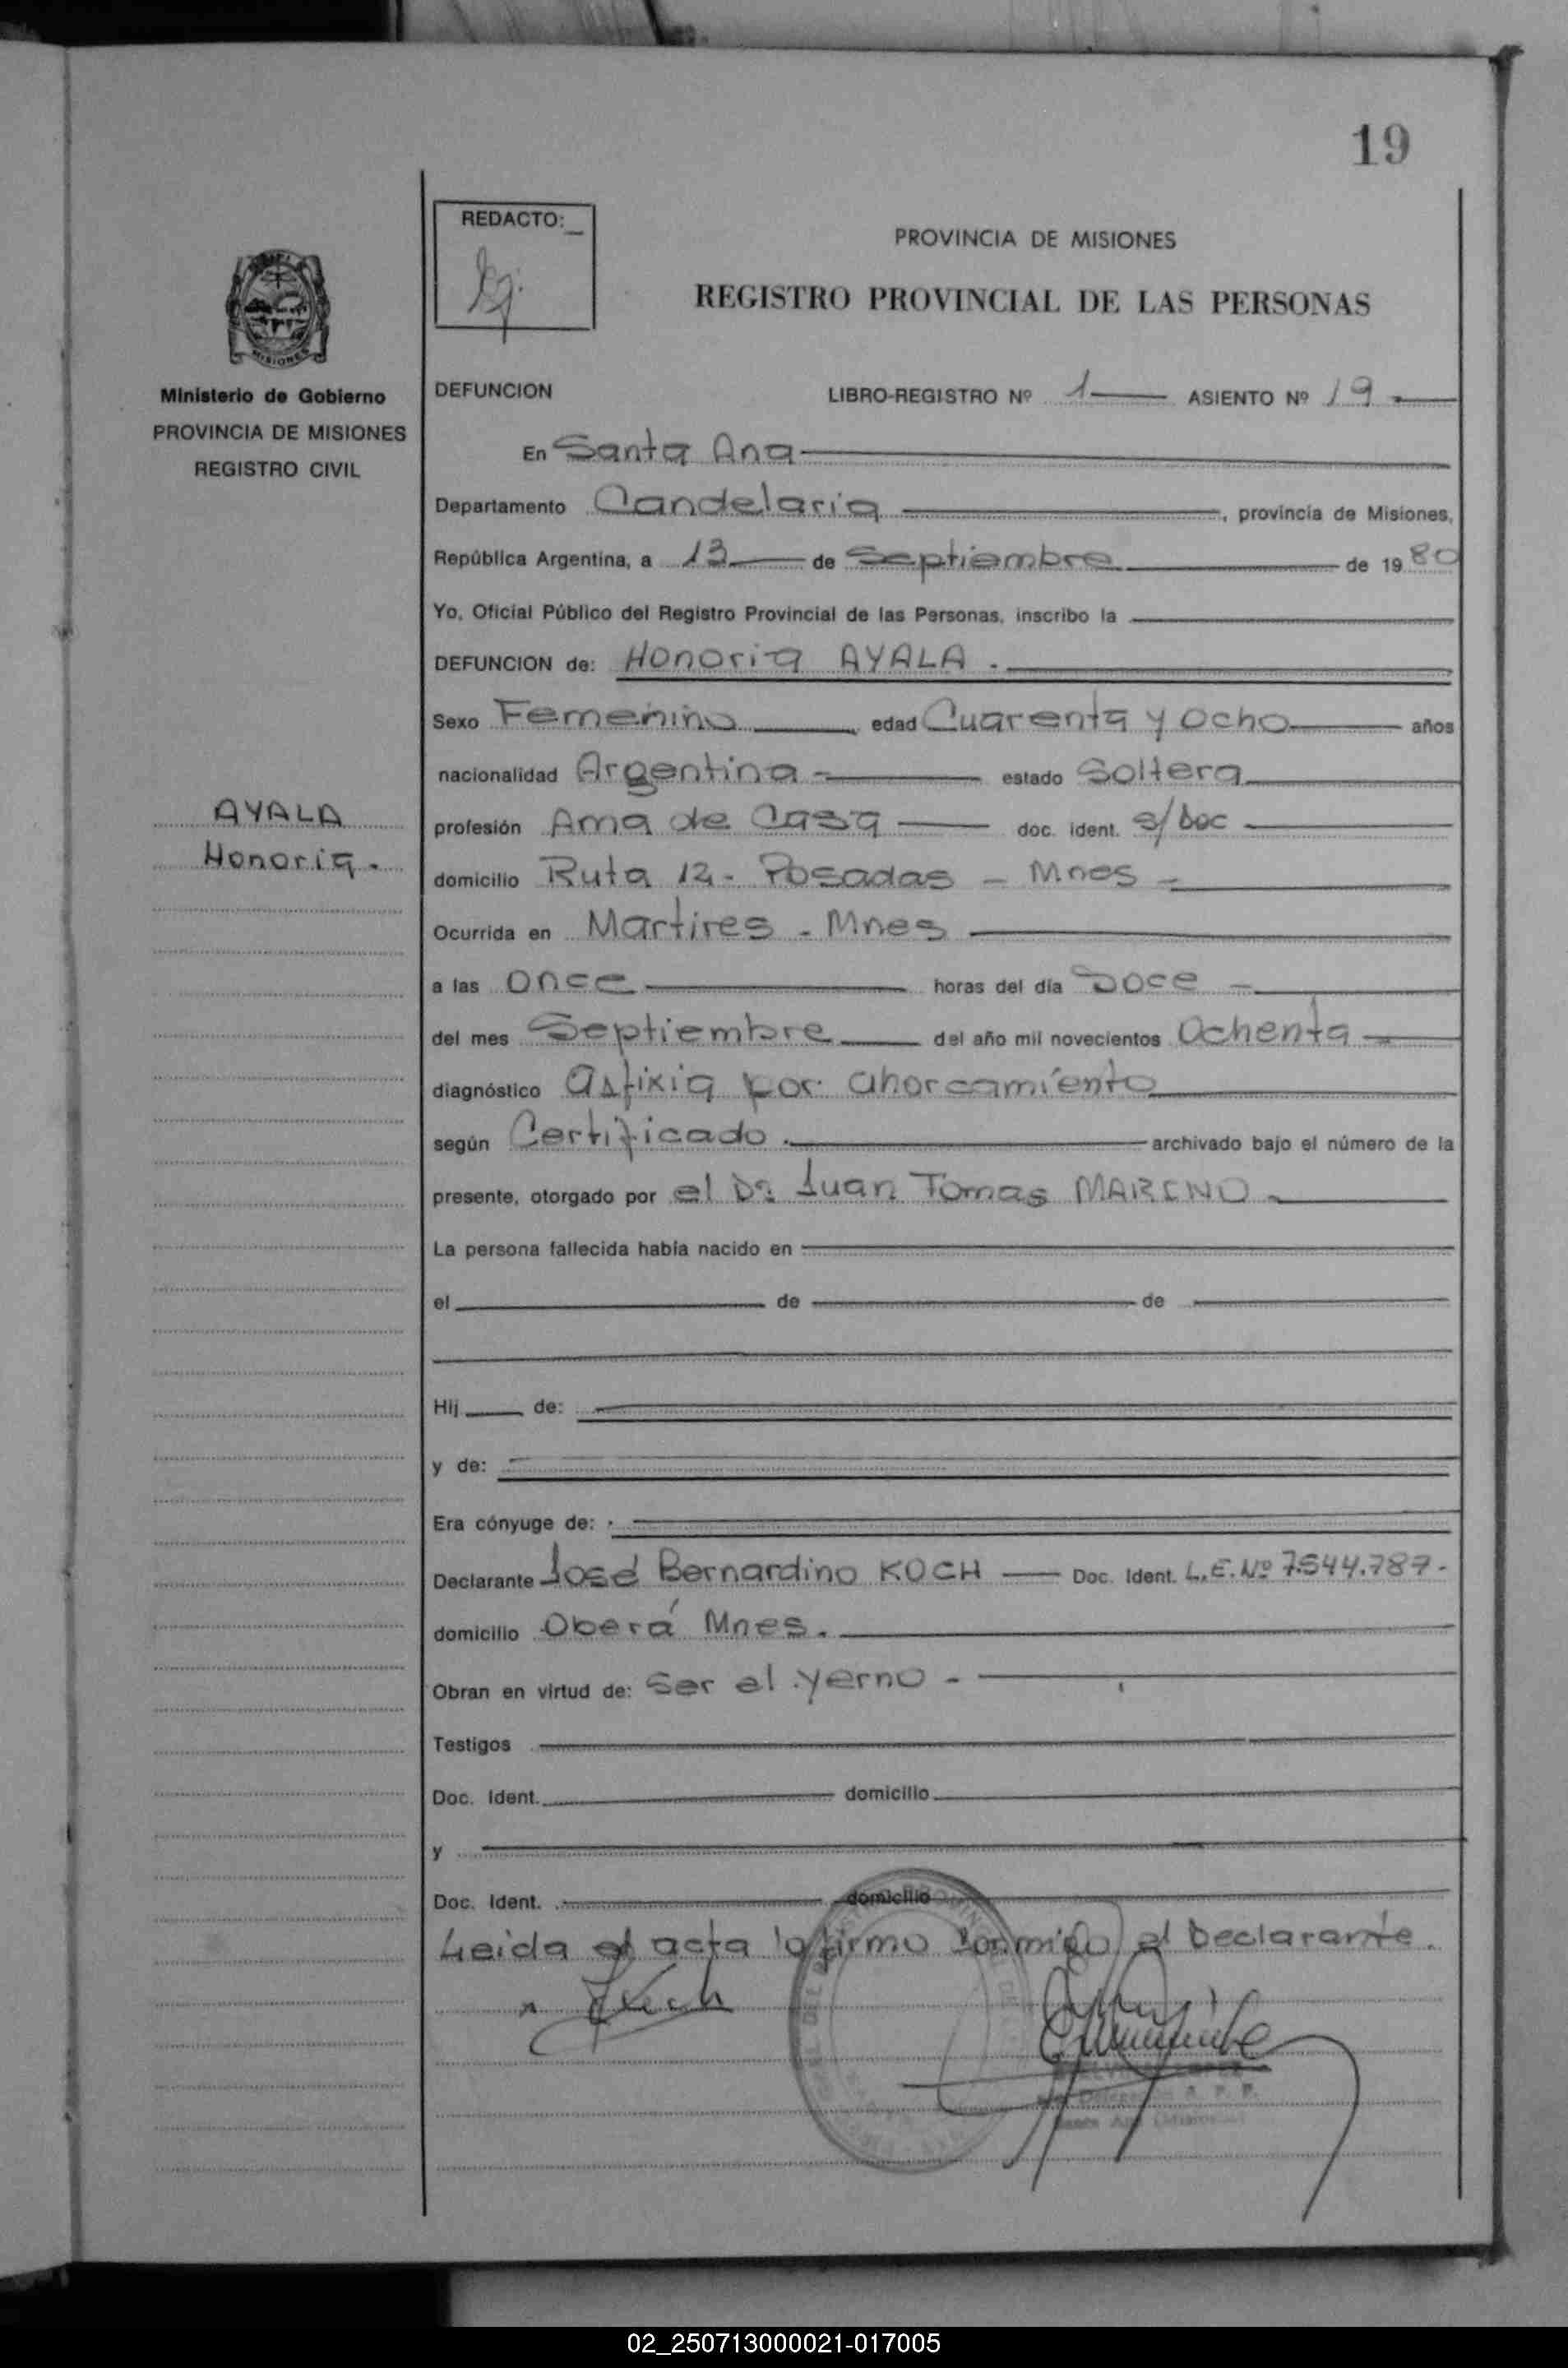 19
REDACTO:
PROVINCIA DE MISIONES
REGISTRO PROVINCIAL DE LAS PERSONAS
MISIONES
Ministerio de Gobierno
PROVINCIA DE MISIONES
REGISTRO CIVIL
DEFUNCION LIBRO-REGISTRO Nº 1 ASIENTO Nº 19
En Santa Ana
Departamento Candelaria, provincia de Misiones,
República Argentina, a 13 de Septiembre de 1980
Yo, Oficial Público del Registro Provincial de las Personas, inscribo la
DEFUNCION de: Honoria AYALA.
Sexo Femenino edad Cuarenta y Ocho años
nacionalidad Argentina estado Soltera
AYALA
Honoria.
profesión Ama de Casa doc. ident. s/doc
domicilio Ruta 12 - Posadas - Mnes -
Ocurrida en Martires - Mnes
a las Once horas del día Doce -
del mes Septiembre del año mil novecientos Ochenta
diagnóstico asfixia por ahorcamiento
según Certificado. archivado bajo el número de la
presente, otorgado por el Dr. Juan Tomas MARENO
La persona fallecida había nacido en
el de de
Hij de:
y de:
Era cónyuge de:
Declarante José Bernardino KOCH Doc. Ident. L.E. Nº 7.544.787.
domicilio Oberá Mnes.
Obran en virtud de: Ser el yerno -
Testigos
Doc. Ident. domicilio
y
Doc. Ident. domicilio
Leida el acta la firmo conmigo el Declarante.
02_250713000021-017005